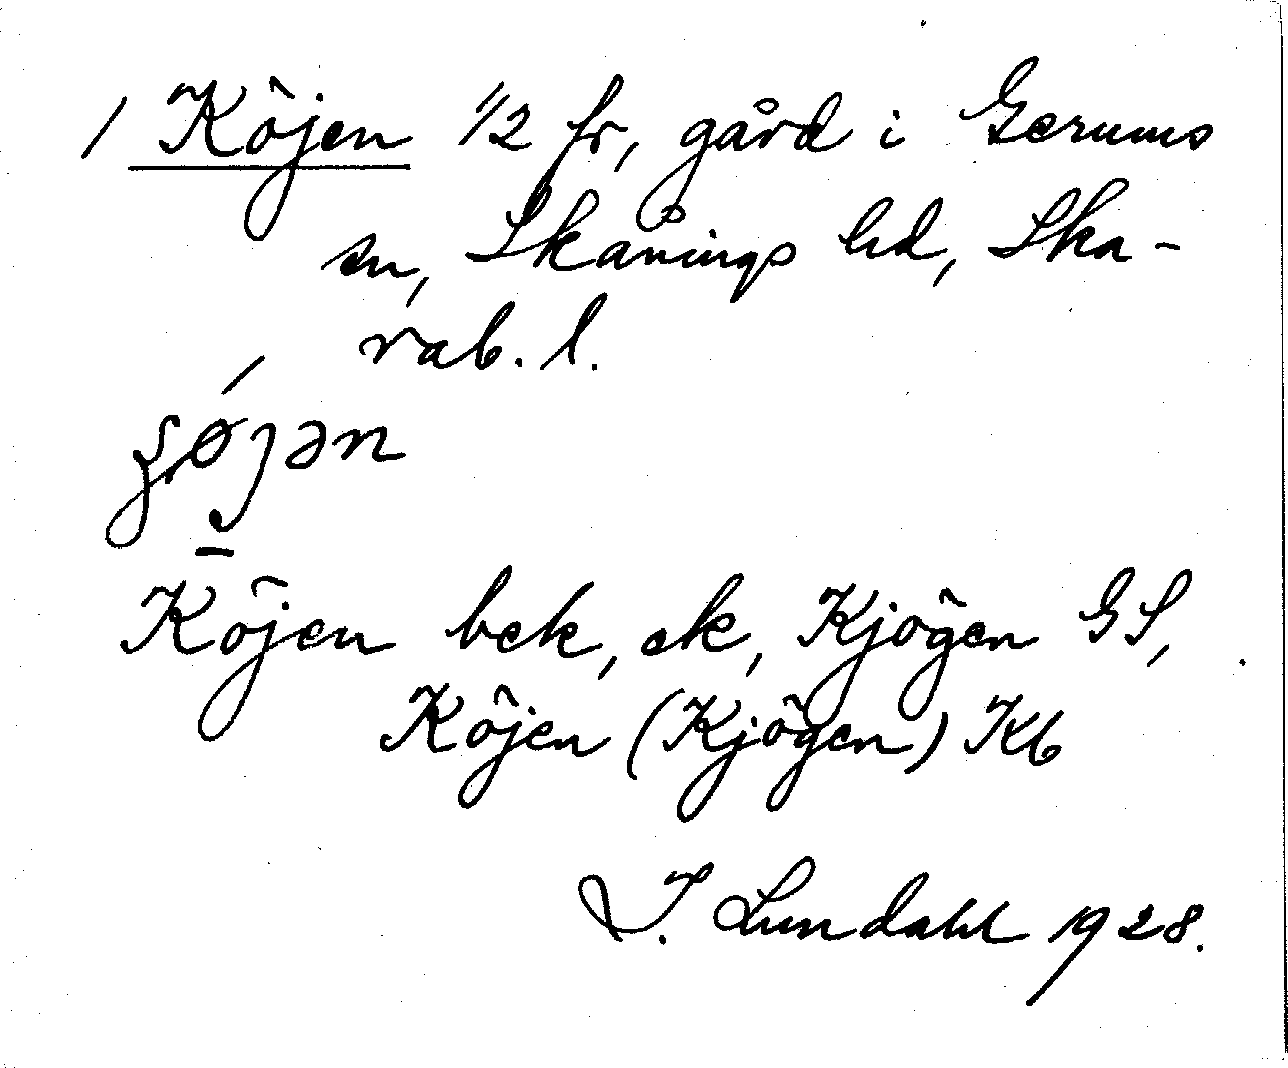 1 Köjen 1/2 fr, gård i Gerums
sn, Skånings hd, Ska-
rab. l.
Köjen bek, ek, Kjögen GS,
Köjen (Kjögen) Kb
I. Lundahl 1928.